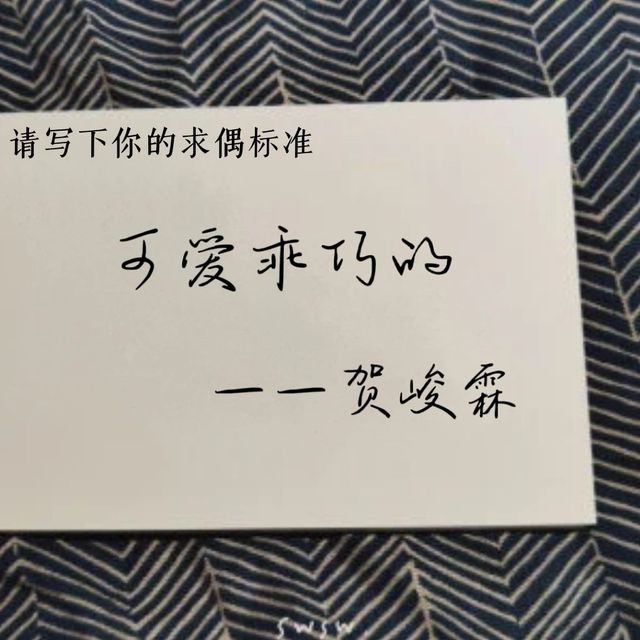 请写下你的求偶标准
可爱乖巧的
——贺峻霖
swsw.